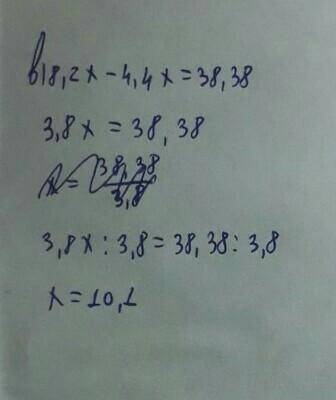 в) 8,2x - 4,4x = 38,38
3,8x = 38,38
x = 38,38/3,8
3,8x : 3,8 = 38,38 : 3,8
x = 10,1